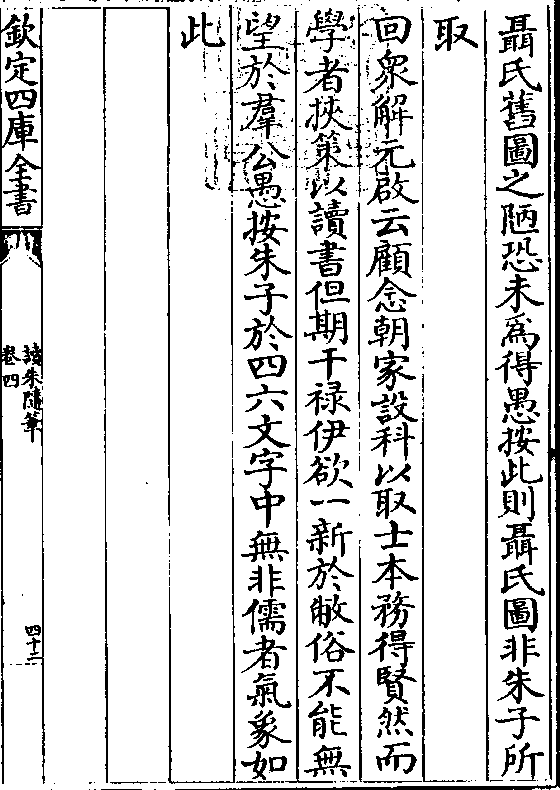 聶氏舊圖之陋恐未爲得愚按此則聶氏圖非朱子所
取
回衆解元啟云顧念朝家設科以取士本務得賢然而
學者挾策以讀書但期干祿伊欲一新於敝俗不能無
望於羣公愚按朱子於四六文字中無非儒者氣象如
此
欽定四庫全書
讀朱隨筆
卷四
四十二